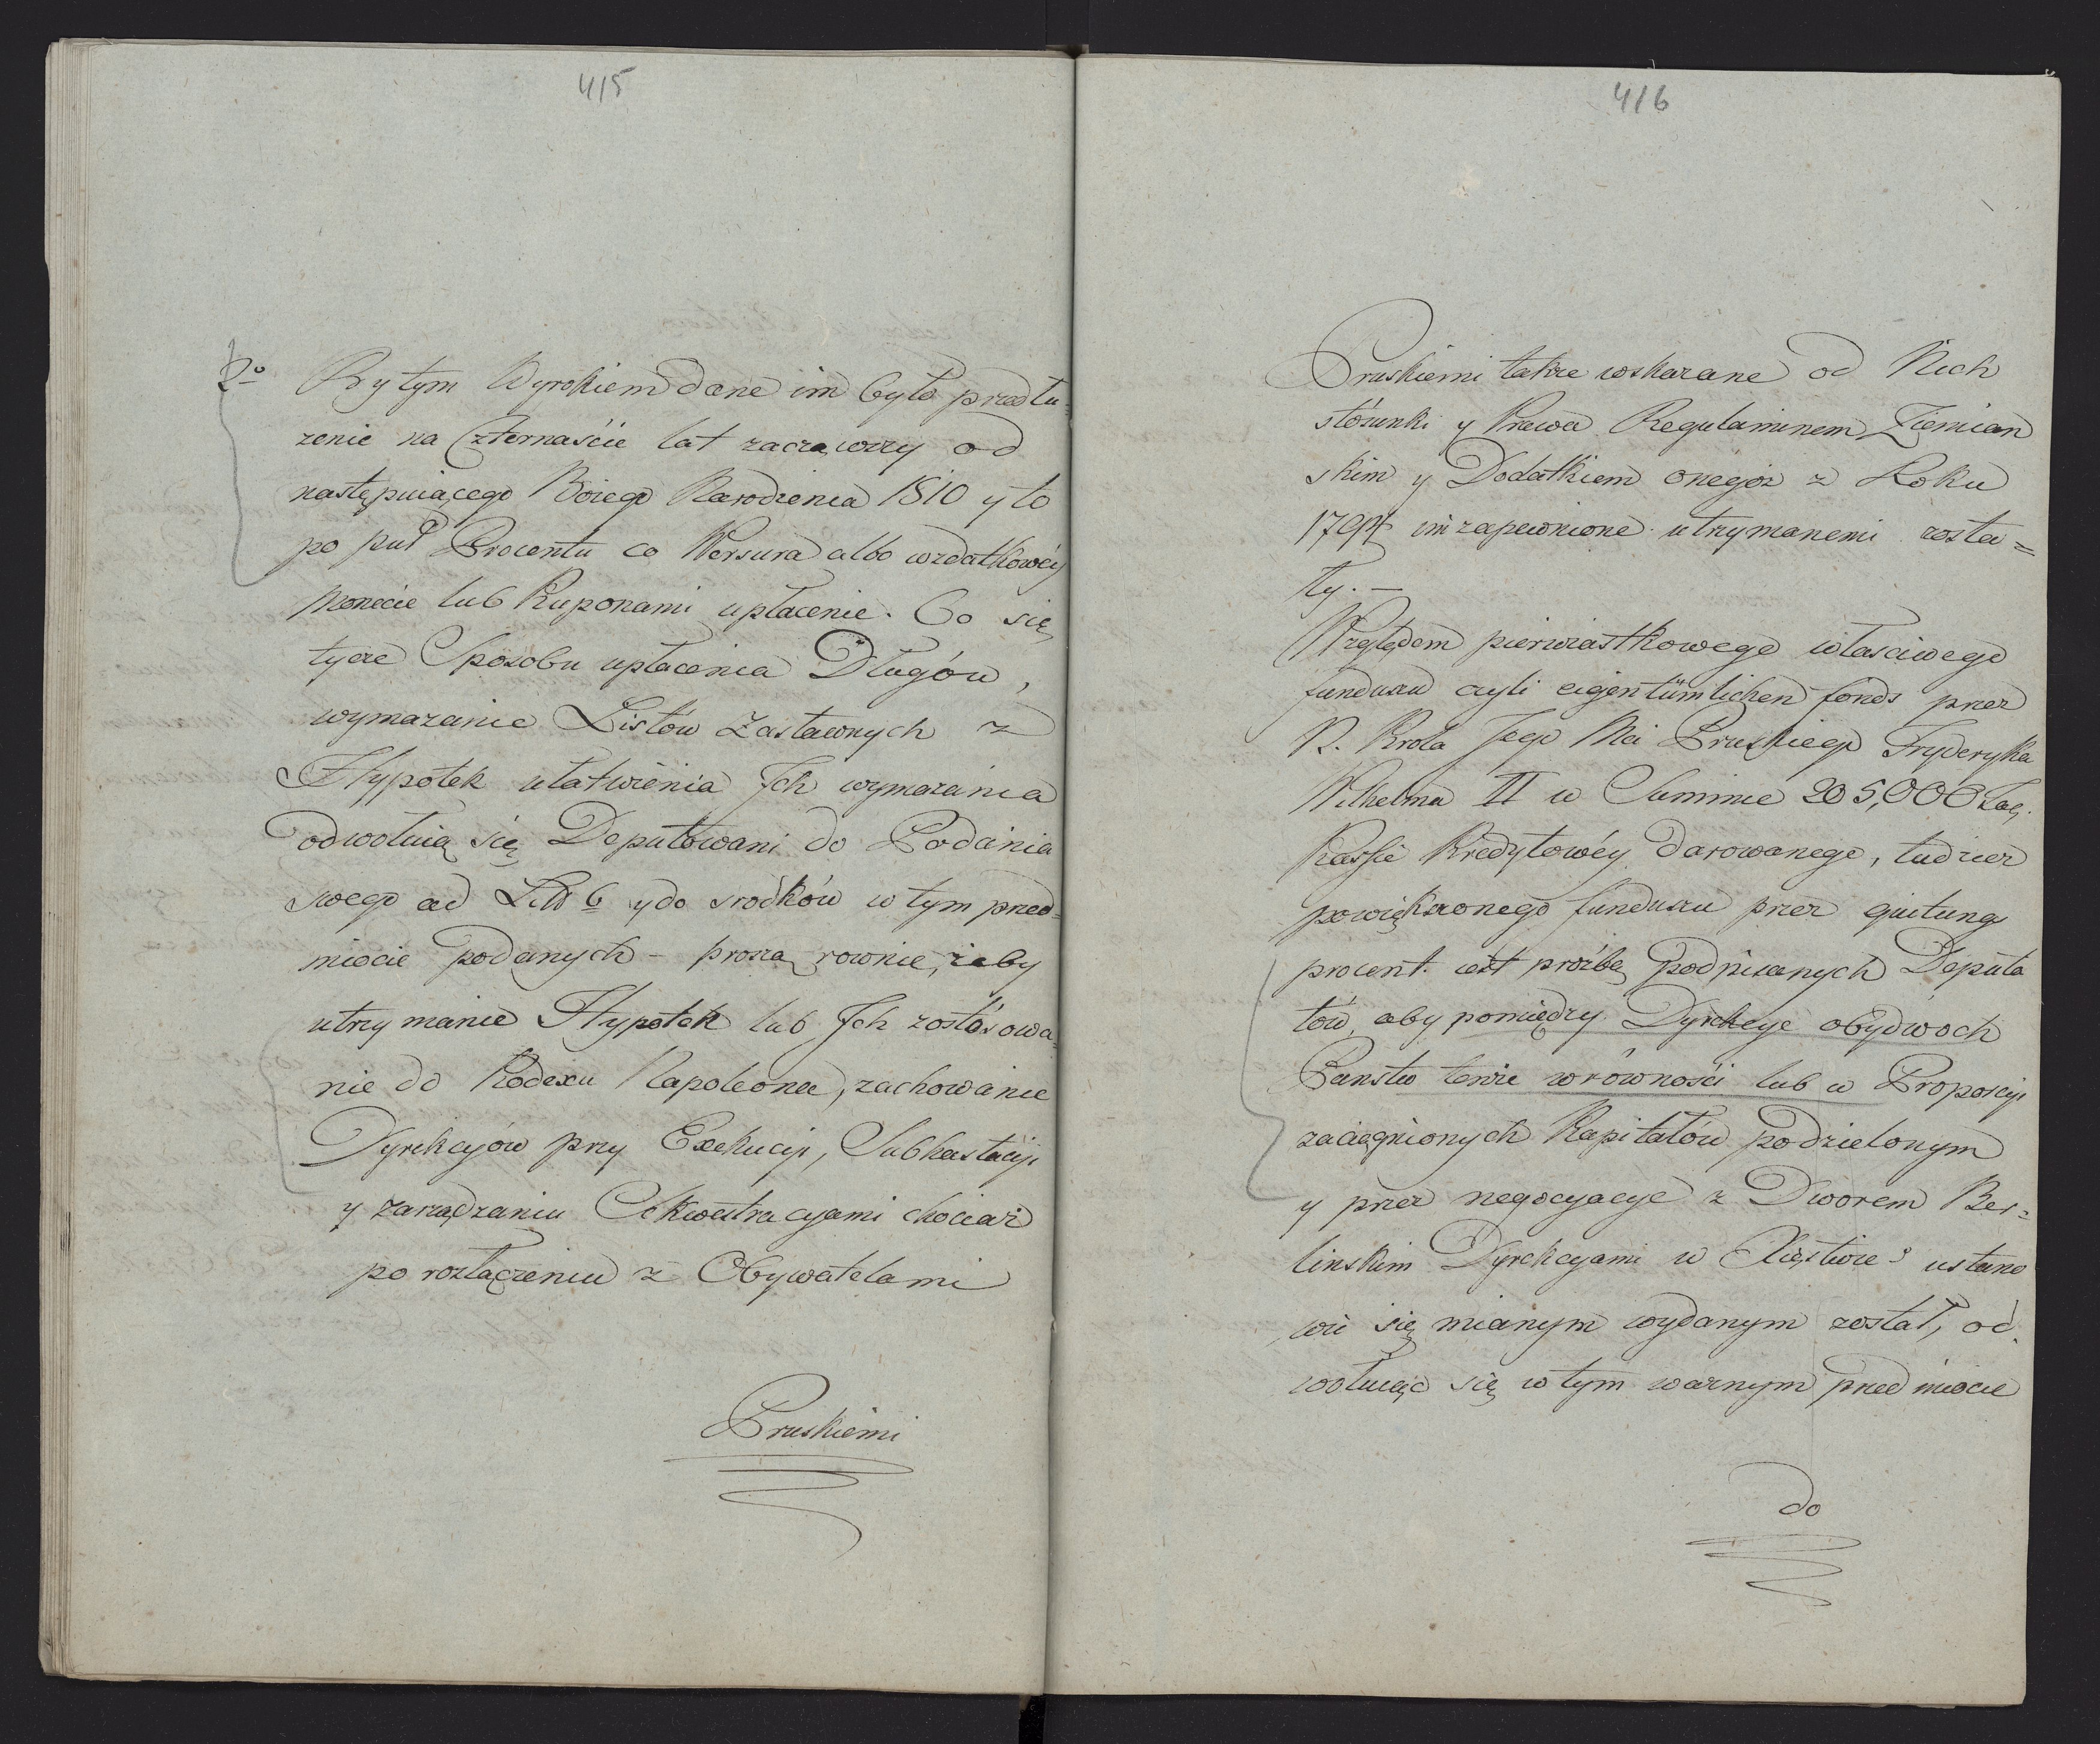 415
2º By tym Wyrokiem dane im było przedłu=
zenie na Czternaście lat zacząwszy od
następuiącego Bożego Narodzenia 1810 y to
po puł Procentu co Wersura albo wzdatkowéy
Monecie lub Kuponami upłacenie. Co się
tycze Sposobu upłacenia Długów,
wymazanie Listów Zastawnych z
Hypotek ułatwienia Jch wymazania
odwołuią się Deputowani do Podania
swego ad Litt 6 y do srodków w tym przed=
miocie podanych - proszą rownie, żeby
utrzymanie Hypotek lub Jch zostósowa=
nie do Kodexu Napoleona, zachowanie
Dyrekcyów przy Exekucyi, Subhastacyi
y zarządzaniu Sekwestracyami chociaż
po rozłączeniu z Obywatelami
Pruskiemi
416
Pruskiemi także wskazane od Nich
stósunki y Prawa Regulaminem Ziemian
skim y Dodatkiem onegoż z Roku
1794 im zapewnione utrzymanemi zosta=
ły. -
Względem pierwiastkowego własciwego
funduszu czyli eigentümlichen fonds przez
N. Krola Jego Mci Pruskiego Fryderyka
Wilhelma II w Summie 205,000 Tal.
Kassie Kredytowéy darowanego, tudzież
powiększonego funduszu przez quitung
procent. iest proźbą Podpisanych Deputa
tów, aby pomiędzy Dyrekcye obydwoch
Panstw tenże w równości lub w Proporcyi
zaciągnionych Kapitałów podzielonym
y przez negocyacye z Dworem Ber=
linskim Dyrekcyami w Xięstwie ustano
wić się mianym wydanym został, od
wołuiąc się w tym ważnym przedmiocie
do